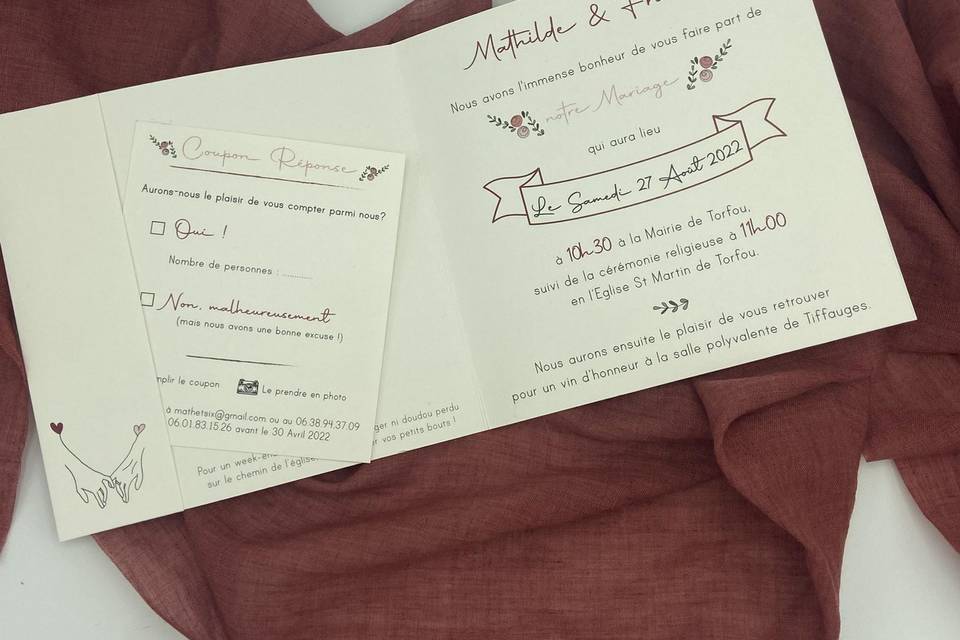 Mathilde &
Nous avons l'immense bonheur de vous faire part de
notre Mariage
qui aura lieu
Le Samedi 27 Août 2022
à 10h30 à la Mairie de Torfou,
suivi de la cérémonie religieuse à 11h00
en l'Eglise St Martin de Torfou.
Nous aurons ensuite le plaisir de vous retrouver
pour un vin d'honneur à la salle polyvalente de Tiffauges.
Coupon Réponse
Aurons-nous le plaisir de vous compter parmi nous?
Oui !
Nombre de personnes : ...........
Non, malheureusement
(mais nous avons une bonne excuse !)
mplir le coupon
Le prendre en photo
à mathetsix@gmail.com ou au 06.38.94.37.09
06.01.83.15.26 avant le 30 Avril 2022
ger ni doudou perdu
r vos petits bouts !
Pour un week-en
sur le chemin de l'église